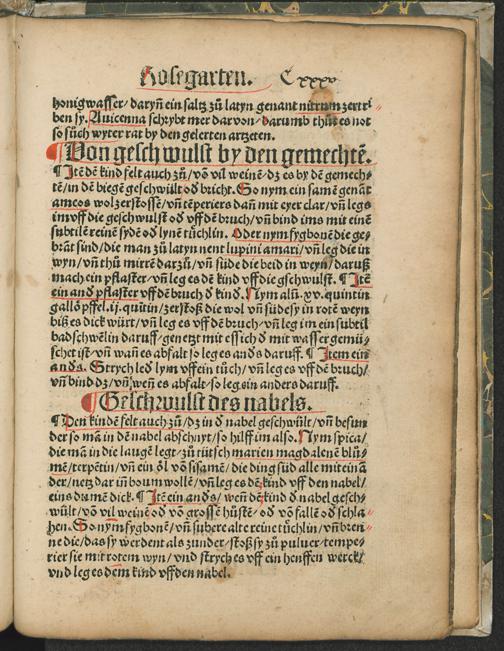 Rosegarten. Cxxxv
honigwasser/ daryñ ein saltz zů latyn genant nitrum zertri
ben sy. Auicenna schrybt mer dar von/ darumb thůt es not
so sůch wyter rat by den gelerten artzeten.
Von geschwulst by den gemechtē.
¶ Itē dē kind felt auch zů/ vō vil weinē/ dz es by dē gemech-
tē/ in dē biegē geschwilt oď bricht. So nym ein samē genāt
ameos wol zerstossē/ vñ tēperiers dañ mit eyer clar/ vñ legs
im vff die geschwulst oď vff dē bruch/ vñ bind ims mit einē
subtilē reinē sydē oď lynē tüchlin. Oder nym fygbonē die ge-
brāt sind/ die man zů latyn nent lupini amari/ vñ leg die in
wyn/ vñ thů mirrē darzů/ vñ süde die beid in weyn/ daruß
mach ein pflaster/ vñ leg es dē kind vff die gschwulst. ¶ Itē
ein and ď pflaster vff dē bruch ď kind. Nym alū. xv. quintin
gallōpffel .ij. quītin/ zerstoß die wol vñ südes y in rotē weyn
biß es dick würt/ vñ leg es vff dē bruch/ vñ leg im ein subtil
badschwēlin daruff/ genetzt mit essich ď mit wasser gemü-
schet ist/ vñ wañ es abfalt so leg es anďs daruff. ¶ Item ein
anďs. Strych led lym vff ein tůch/ vñ leg es vff dē bruch/
vñ bind dz/ vñ wen̄ es abfalt/ so leg ein anders daruff.
¶ Geschwulst des nabels.
¶ Den kindē felt auch zů/ dz in ď nabel geschwült/ vñ besun
der so mā in dē nabel abschnyt/ so hilff im also. Nym spica/
die mā in die laugē legt/ zů tütsch marien magdalenē blů-
mē/ terpētin/ vñ ein ȯl vō sisamē/ die ding süd alle mit einā
der/ netz dar in boumwollē/ vñ leg es dē kind vff den nabel/
eins dumē dick. ¶ Itē ein anďs/ wen̄ dē kind ď nabel gesch-
wült/ vō vil weinē oď vō grossē hůstē/ oď vō fallē oď schla
hen. So nym fygbonē/ vñ subere alte reine tüchlin/ vñ bren
ne die/ das sy werdent als zunder/ stoß sy zů puluer/ tempe-
rier sie mit rotem wyn/ vnd strych es vff ein henffen werck/
vnd leg es dem kind vff den nabel.